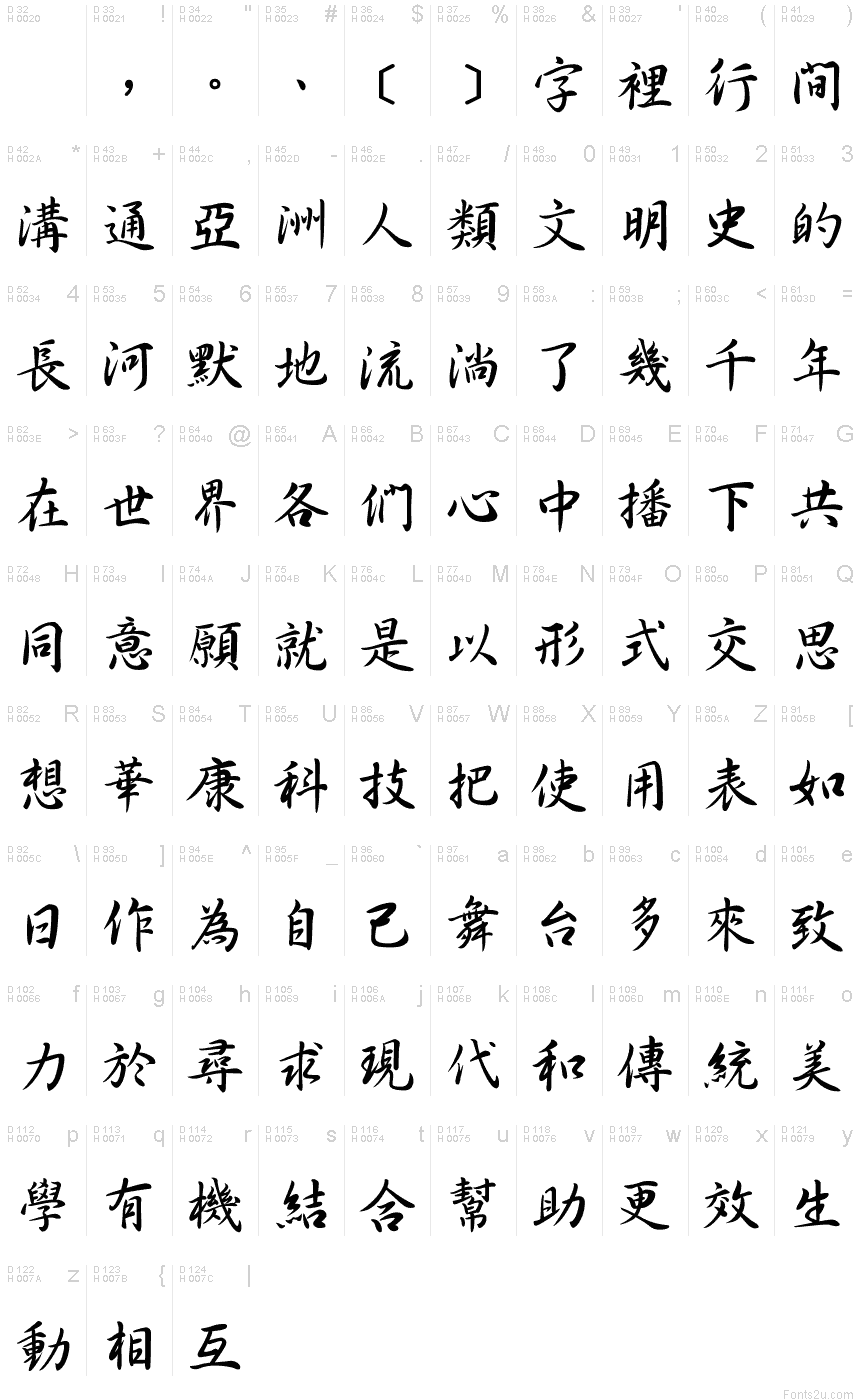 D 32 H 0020 D 33 H 0021 ! D 34 H 0022 " D 35 H 0023 # D 36 H 0024 $ D 37 H 0025 % D 38 H 0026 & D 39 H 0027 ' D 40 H 0028 ( D 41 H 0029 )
， 。 、 〔 〕 字 裡 行 間
D 42 H 002A * D 43 H 002B + D 44 H 002C , D 45 H 002D - D 46 H 002E . D 47 H 002F / D 48 H 0030 0 D 49 H 0031 1 D 50 H 0032 2 D 51 H 0033 3
溝 通 亞 洲 人 類 文 明 史 的
D 52 H 0034 4 D 53 H 0035 5 D 54 H 0036 6 D 55 H 0037 7 D 56 H 0038 8 D 57 H 0039 9 D 58 H 003A : D 59 H 003B ; D 60 H 003C < D 61 H 003D =
長 河 默 地 流 淌 了 幾 千 年
D 62 H 003E > D 63 H 003F ? D 64 H 0040 @ D 65 H 0041 A D 66 H 0042 B D 67 H 0043 C D 68 H 0044 D D 69 H 0045 E D 70 H 0046 F D 71 H 0047 G
在 世 界 各 們 心 中 播 下 共
D 72 H 0048 H D 73 H 0049 I D 74 H 004A J D 75 H 004B K D 76 H 004C L D 77 H 004D M D 78 H 004E N D 79 H 004F O D 80 H 0050 P D 81 H 0051 Q
同 意 願 就 是 以 形 式 交 思
D 82 H 0052 R D 83 H 0053 S D 84 H 0054 T D 85 H 0055 U D 86 H 0056 V D 87 H 0057 W D 88 H 0058 X D 89 H 0059 Y D 90 H 005A Z D 91 H 005B [
想 華 康 科 技 把 使 用 表 如
D 92 H 005C \ D 93 H 005D ] D 94 H 005E ^ D 95 H 005F _ D 96 H 0060 ` D 97 H 0061 a D 98 H 0062 b D 99 H 0063 c D 100 H 0064 d D 101 H 0065 e
日 作 為 自 己 舞 台 多 來 致
D 102 H 0066 f D 103 H 0067 g D 104 H 0068 h D 105 H 0069 i D 106 H 006A j D 107 H 006B k D 108 H 006C l D 109 H 006D m D 110 H 006E n D 111 H 006F o
力 於 尋 求 現 代 和 傳 統 美
D 112 H 0070 p D 113 H 0071 q D 114 H 0072 r D 115 H 0073 s D 116 H 0074 t D 117 H 0075 u D 118 H 0076 v D 119 H 0077 w D 120 H 0078 x D 121 H 0079 y
學 有 機 結 合 幫 助 更 效 生
D 122 H 007A z D 123 H 007B { D 124 H 007C |
動 相 互
Fonts2u.com